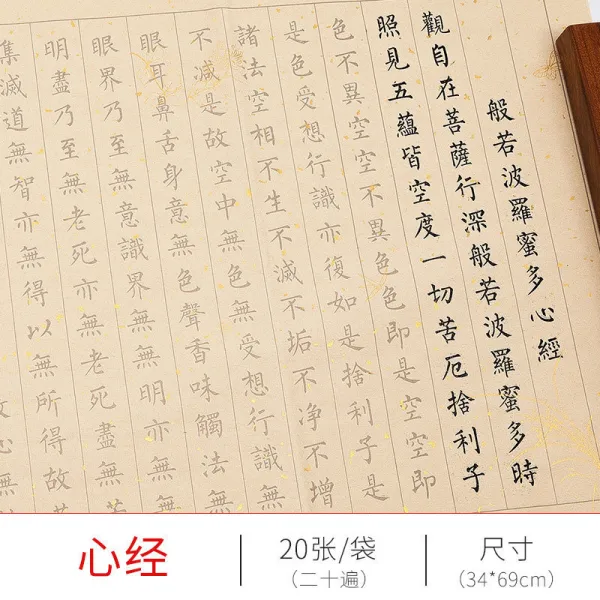 般若波羅蜜多心經
觀自在菩薩行深般若波羅蜜多時
照見五蘊皆空度一切苦厄捨利子
色不異空空不異色色即是空空即
是色受想行識亦復如是捨利子是
諸法空相不生不滅不垢不净不增
不減是故空中無色無受想行識無
眼耳鼻舌身意無色聲香味觸法無
眼界乃至無意識界無無明亦無無
明盡乃至無老死亦無老死盡無苦
集滅道無智亦無得以無所得故
心经
20张/袋
（二十遍）
尺寸
（34*69cm）